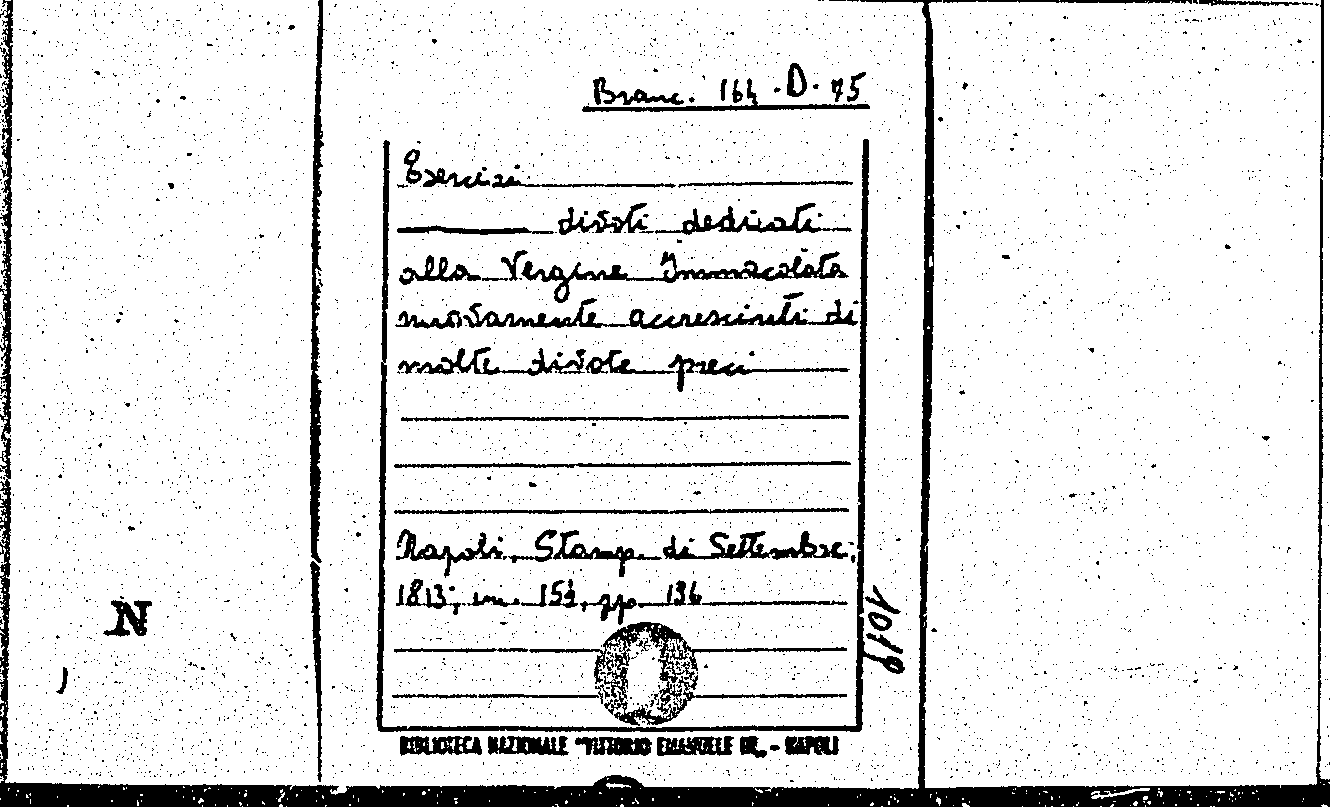 Branc. 164 . D . 75
Esercizi
divoti dedicati
alla Vergine Immacolata
nuovamente accresciuti di
molte divote preci
Napoli, Stamp. di Settembre,
1813, in. 15½, pp. 136
1019
N
BIBLIOTECA NAZIONALE "VITTORIO EMANUELE III„ - NAPOLI